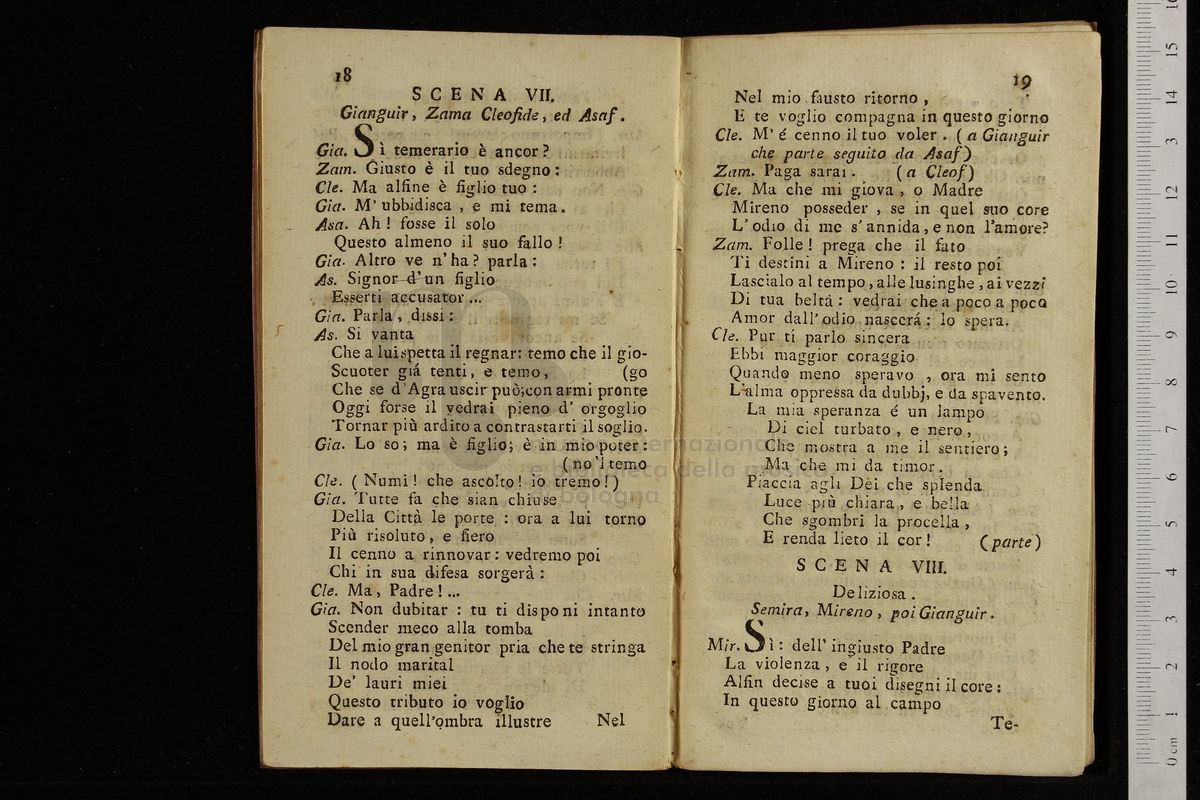 18
SCENA VII.
Gianguir, Zama Cleofide, ed Asaf.
Gia. Sì temerario è ancor?
Zam. Giusto è il tuo sdegno:
Cle. Ma alfine è figlio tuo:
Gia. M'ubbidisca, e mi tema.
Asa. Ah! fosse il solo
Questo almeno il suo fallo!
Gia. Altro ve n'ha? parla:
As. Signor d'un figlio
Esserti accusator...
Gia. Parla, dissi:
As. Si vanta
Che a lui spetta il regnar: temo che il gio-
Scuoter giá tenti, e temo, (go
Che se d'Agra uscir può;con armi pronte
Oggi forse il vedrai pieno d' orgoglio
Tornar più ardito a contrastarti il soglio.
Gia. Lo so; ma è figlio; è in mio poter:
(no'l temo
Cle. (Numi! che ascolto! io tremo!)
Gia. Tutte fa che sian chiuse
Della Città le porte: ora a lui torno
Più risoluto, e fiero
Il cenno a rinnovar: vedremo poi
Chi in sua difesa sorgerà:
Cle. Ma, Padre!...
Gia. Non dubitar: tu ti disponi intanto
Scender meco alla tomba
Del mio gran genitor pria che te stringa
Il nodo marital
De' lauri miei
Questo tributo io voglio
Dare a quell'ombra illustre
Nel
19
Nel mio fausto ritorno,
E te voglio compagna in questo giorno
Cle. M' é cenno il tuo voler. (a Gianguir
che parte seguito da Asaf)
Zam. Paga sarai. (a Cleof)
Cle. Ma che mi giova, o Madre
Mireno posseder, se in quel suo core
L'odio di me s'annida, e non l'amore?
Zam. Folle! prega che il fato
Ti destini a Mireno: il resto poi
Lascialo al tempo, alle lusinghe, ai vezzi
Di tua beltà: vedrai che a poco a poco
Amor dall'odio nascerá: lo spera.
Cle. Pur ti parlo sincera
Ebbi maggior coraggio
Quando meno speravo, ora mi sento
L'alma oppressa da dubbj, e da spavento.
La mia speranza é un lampo
Di ciel turbato, e nero,
Che mostra a me il sentiero;
Ma che mi da timor.
Piaccia agli Dei che splenda
Luce più chiara, e bella
Che sgombri la procella,
E renda lieto il cor! (parte)
SCENA VIII.
Deliziosa.
Semira, Mireno, poi Gianguir.
Mir. Sì: dell' ingiusto Padre
La violenza, e il rigore
Alfin decise a tuoi disegni il core:
In questo giorno al campo
Te-